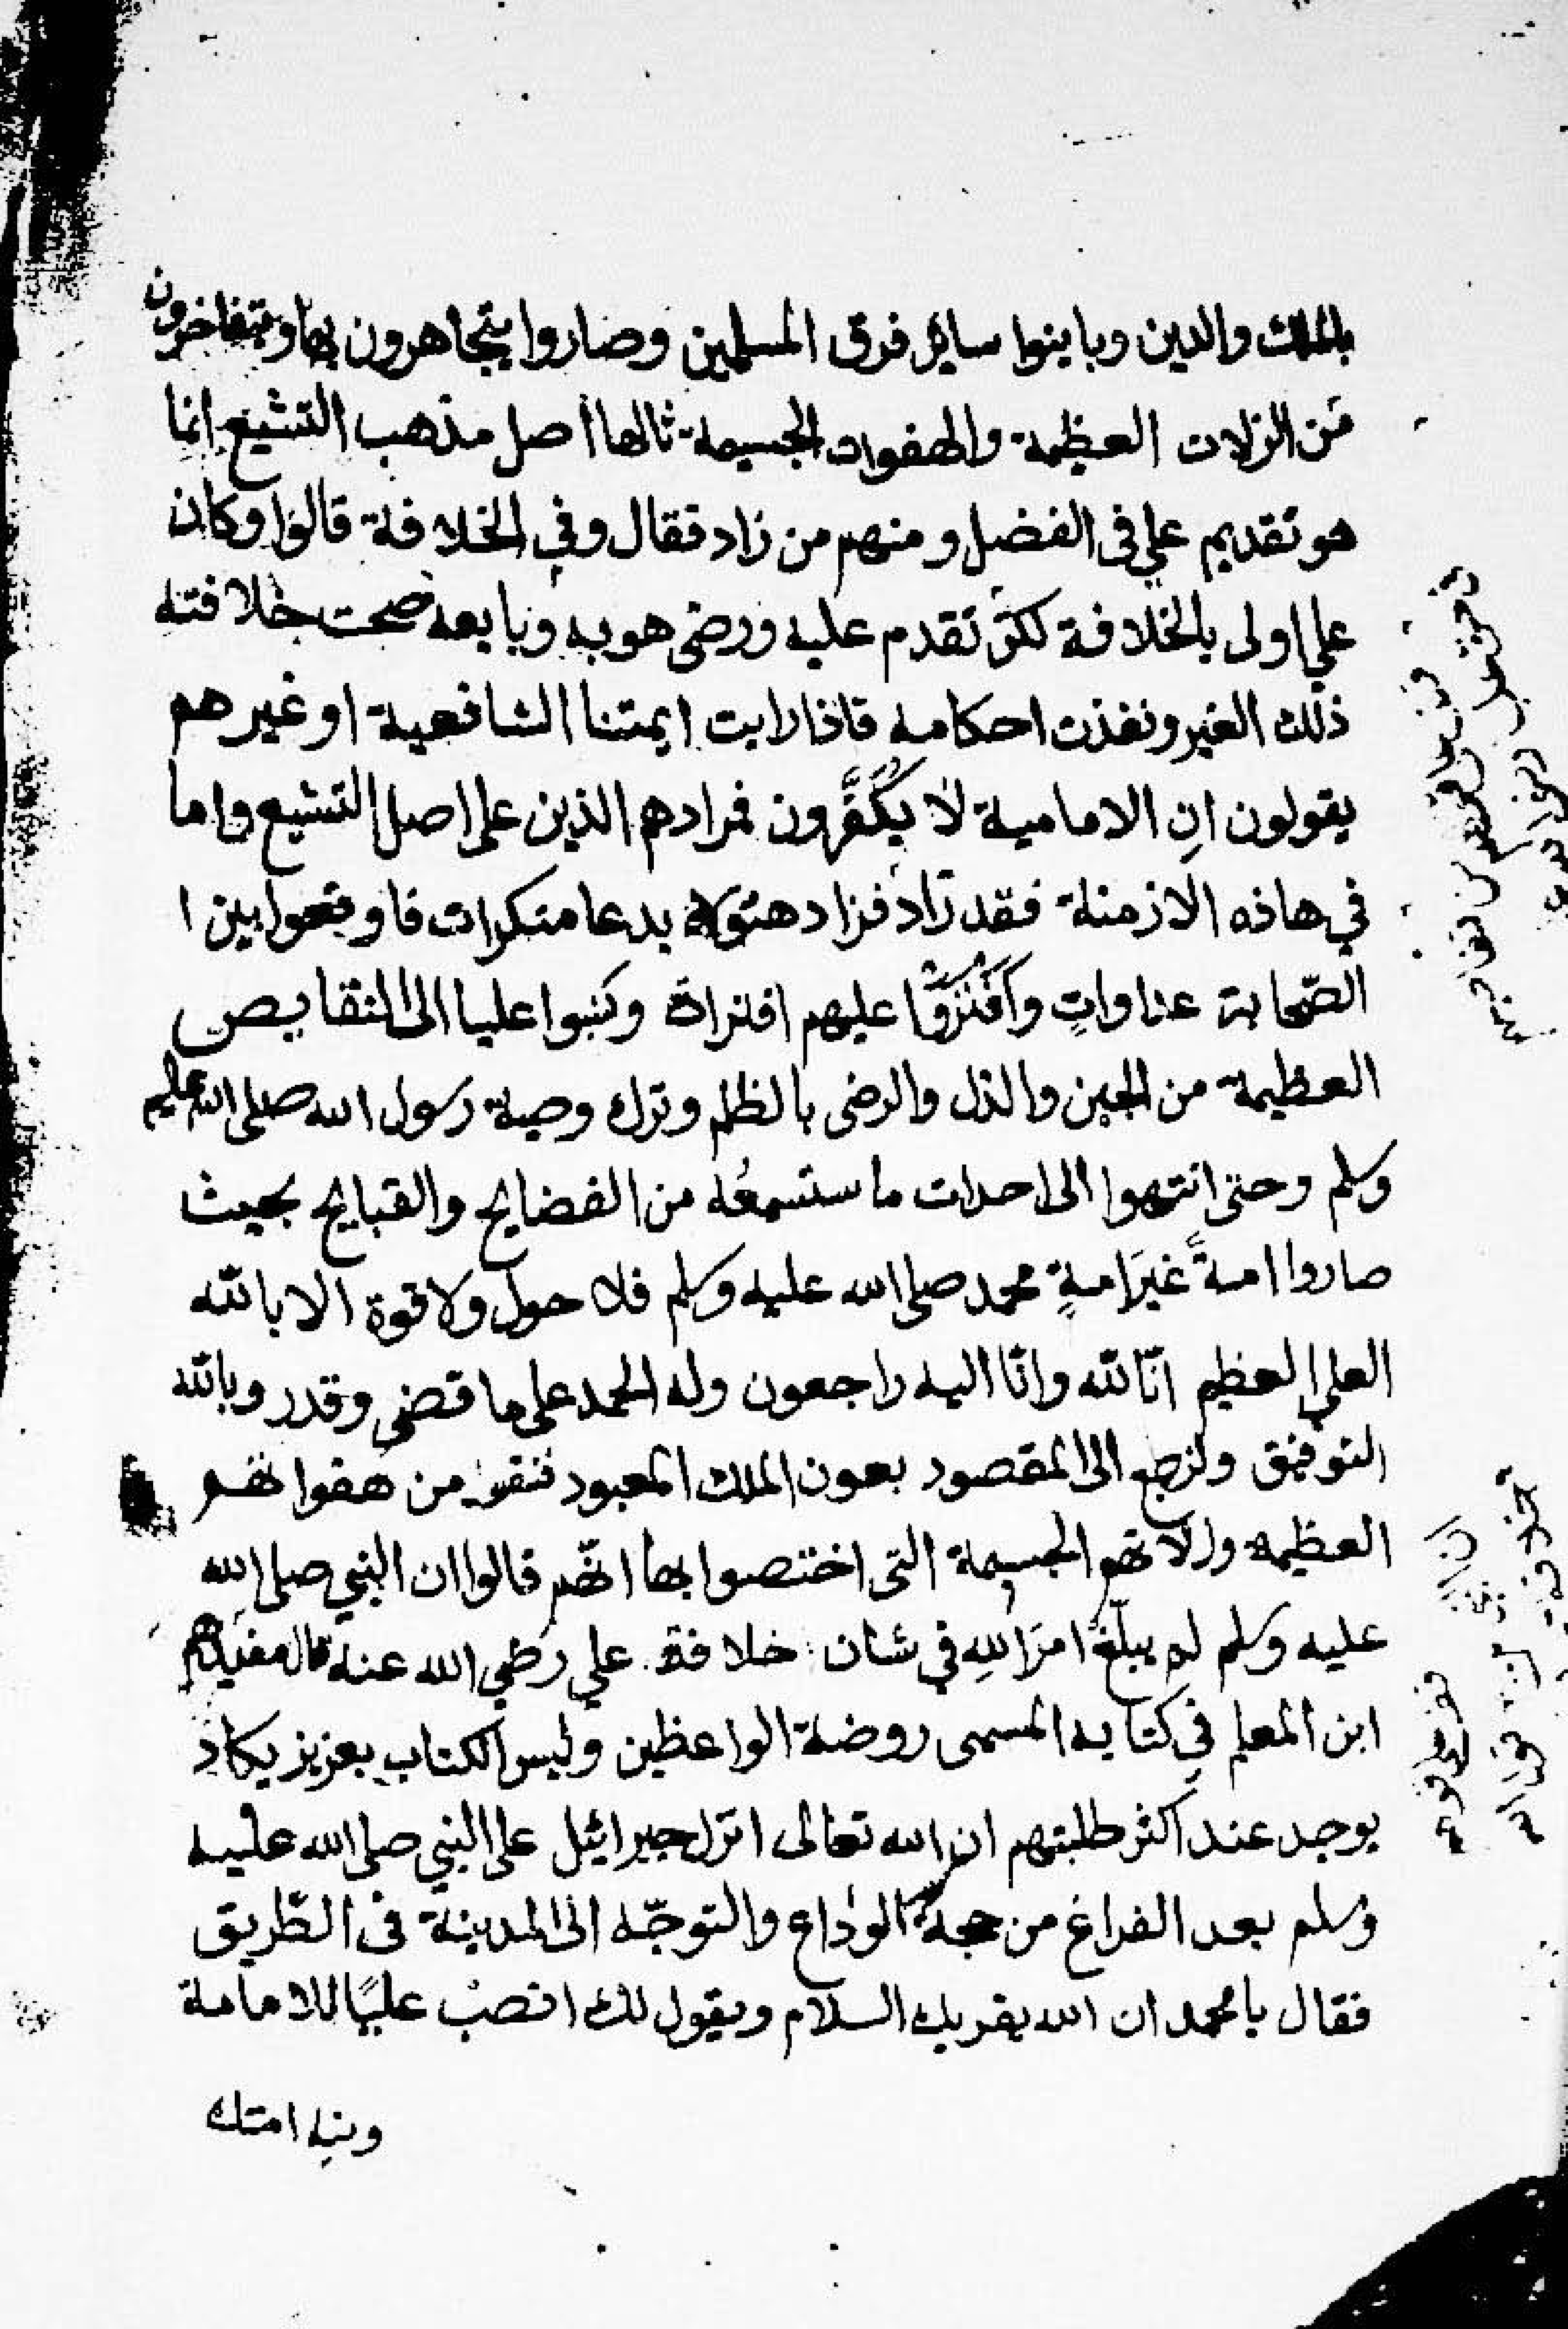 بالملك والدين وباينوا سائر فرق المسلمين وصاروا يتجاهرون بها ويتفاخرون
من الزلات العظيمة والهفوات الجسيمة ثالثها اصل مذهب التشيع انما
هو تقديم علي في الفضل ومنهم من زاد فقال وفي الخلافة قالوا وكان
علي اولى بالخلافة لكن تقدم عليه ورضي هو به وبايعه صحت خلافته
ذلك الغير ونفذت احكامه فاذا رايت ايمتنا الشافعية او غيرهم
يقولون ان الامامية لا يُكَفَّرون فمرادهم الذين على اصل التشيع واما
في هاذه الازمنة فقد زاد فزاد هؤلاء بدعا منكرات فاوقعوا بين ا
الصّحابة عداواتٍ وافتروا عليهم افتراة ونسبوا عليا الى النقايص
العظيمة من الجبن والذل والرضى بالظلم وترك وصية رسول الله صلى الله عليه
وسلم وحتى انتهوا الى احداث ما ستسمعُه من الفضايح والقبايح بحيث
صاروا امةً غيرَ امةٍ محمد صلى الله عليه وسلم فلا حول ولا قوة الا بالله
العلي العظيم انّا لله وانّا اليه راجعون وله الحمد على ما قضى وقدر وبالله
التوفيق ولنرجع الى المقصود بعون الملك المعبود فنقول من هفواتهم
العظيمه وزلاتهم الجسيمة التي اختصوا بها انهّم قالوا ان النبي صلى الله
عليه وسلم لم يبلّغ امرَ اللهِ في شان خلافة علي رضي الله عنه قال مفيدهم
ابن المعلم في كتابه المسمى روضة الواعظين وليس الكتاب بعزيز يكاد
يوجد عند اكثر طلبتهم ان الله تعالى انزل جبرائيل على النبي صلى الله عليه
وسلم بعد الفراغ من حجة الوداع والتوجّه الى المدينة في الطّريق
فقال يا محمد ان الله يقريك السلام ويقول لك انصبْ عليًا للامامة
ونبه امتك